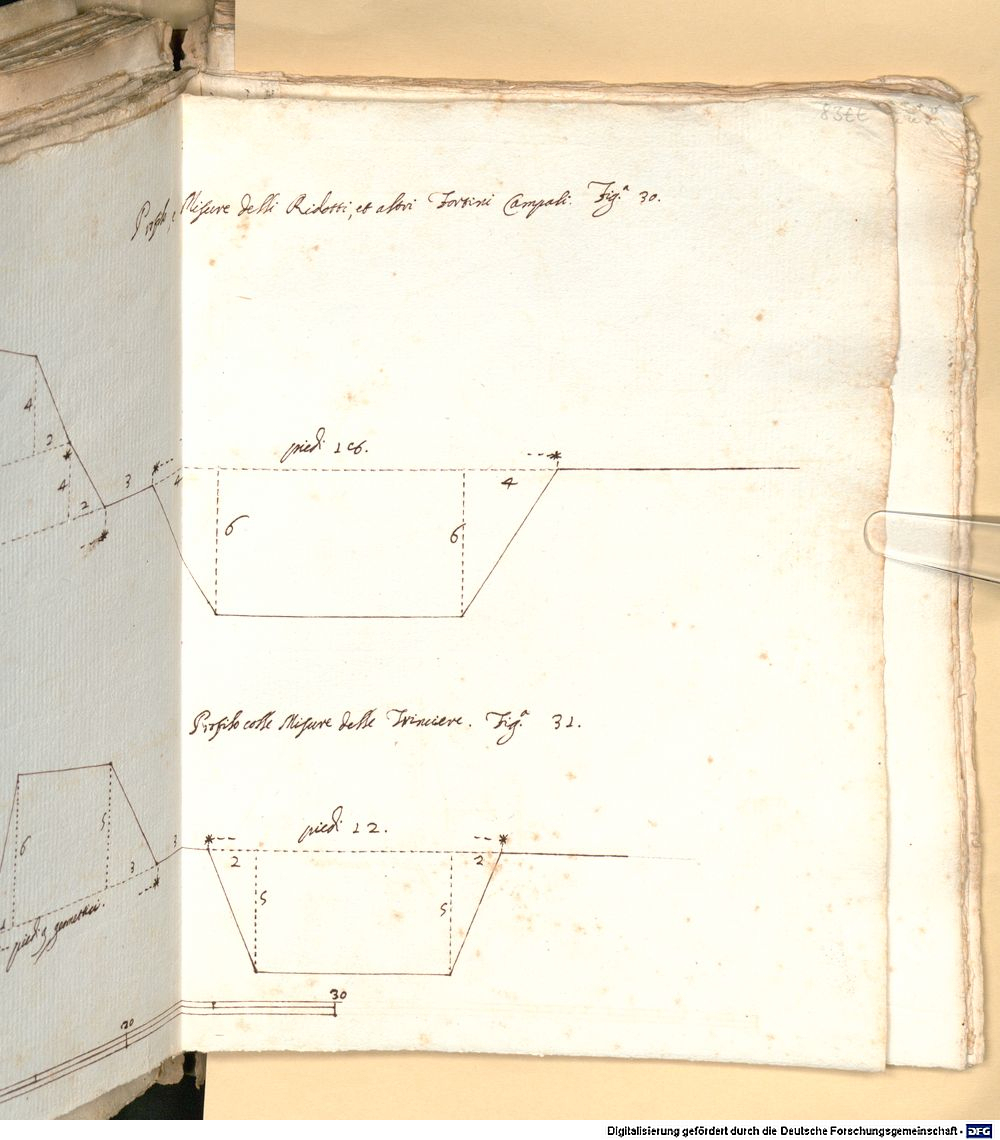 Profili, e Misure delli Ridotti, et altri Fortini Campali. Figª 30.
4
2
4
2
3
4
piedi 16.
4
6
6
Profilo colle Misure delle Trinciere. Figª 31.
6
5
3
3
piedi 9 geometrici.
piedi 12.
2
2
5
5
20
30
Digitalisierung gefördert durch die Deutsche Forschungsgemeinschaft - DFG